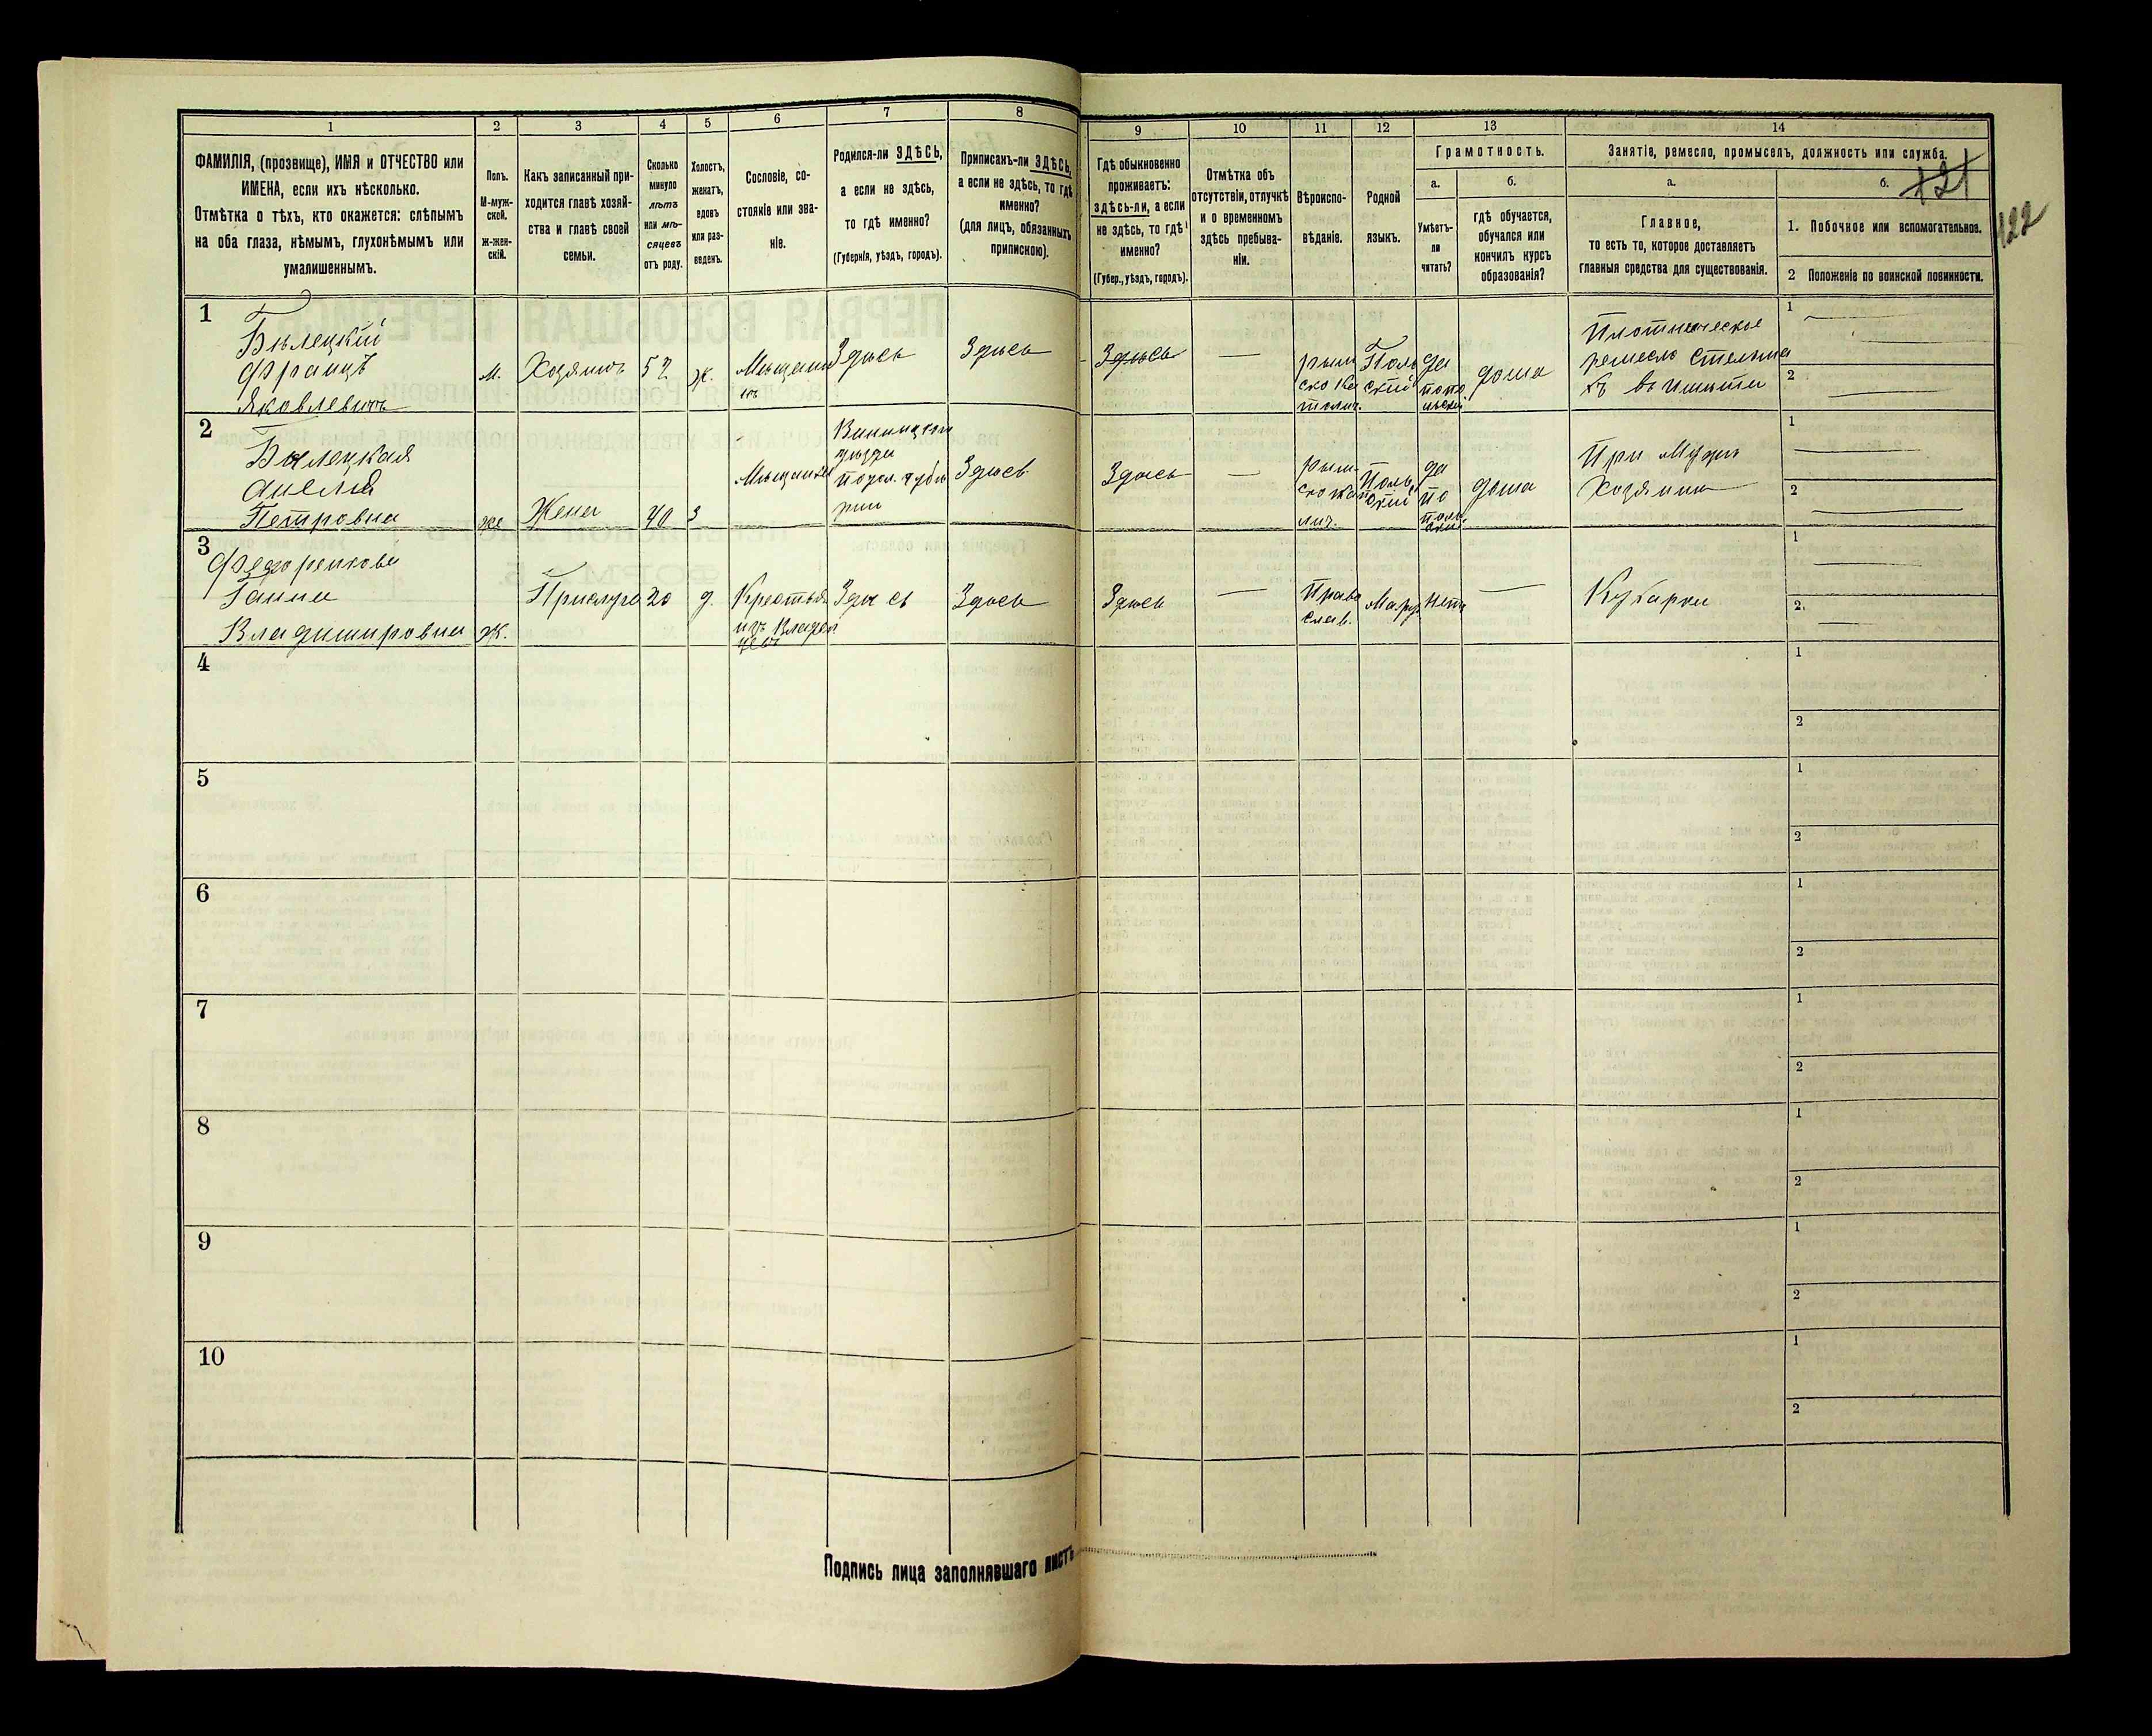 1 2 3 4 5 6 7 8 9 10 11 12 13 14
ФАМИЛІЯ, (прозвище), ИМЯ и ОТЧЕСТВО или
ИМЕНА, если ихъ нѣсколько.
Отмѣтка о тѣхъ, кто окажется: слѣпымъ
на оба глаза, нѣмымъ, глухонѣмымъ или
умалишеннымъ.
Полъ.
М-муж-
ской.
Ж-жен-
скій.
Какъ записанный при-
ходится главѣ хозяй-
ства и главѣ своей
семьи.
Сколько
минуло
лѣтъ
или мѣ-
сяцевъ
отъ роду.
Холостъ,
женатъ,
вдовъ
или раз-
веденъ.
Сословіе, со-
стояніе или зва-
ніе.
Родился-ли ЗДѢСЬ,
а если не здѣсь,
то гдѣ именно?
(Губернія, уѣздъ, городъ).
Приписанъ-ли ЗДѢСЬ,
а если не здѣсь, то гдѣ
именно?
(для лицъ, обязанныхъ
припискою).
Гдѣ обыкновенно
проживаетъ:
здѣсь-ли, а если
не здѣсь, то гдѣ
именно?
(Губер., уѣздъ, городъ).
Отмѣтка объ
отсутствіи, отлучкѣ
и о временномъ
здѣсь пребыва-
ніи.
Вѣроиспо-
вѣданіе.
Родной
языкъ.
Грамотность.
а.
Умѣетъ-
ли
читать?
б.
гдѣ обучается,
обучался или
кончилъ курсъ
образованія?
Занятіе, ремесло, промыселъ, должность или служба.
а.
Главное,
то есть то, которое доставляетъ
главныя средства для существованія.
б.
121
122
1. Побочное или вспомогательное.
2 Положеніе по воинской повинности.
1
Бѣлецкій
Францъ
Яковлевичъ
м.
Хозяинъ
57
ж.
Мѣщани
нъ
Здѣсь
Здѣсь
Здѣсь
—
Рым
ско ка
толич.
Поль
скій
да
по по
льски
дома
Плотническое
ремесло
1
2
2
Бѣлецкая
Анеля
Петровна
же
Жена
40
З
Мѣщанка
Винницком
уѣзди
Подол. губе
рни
Здѣсь
Здѣсь
—
Рым
Поль
скій
да
по
поль
ски
дома
При Мужѣ
Хозяинѣ
1
2
3
Федоренкова
Ганна
Владимировна
Ж.
Прислуга
20
д.
Крестья
изъ Владел
Здѣсь
Здѣсь
Здѣсь
—
Право
слав.
Малор.
нетъ
—
Кухарка
1
2.
4
1
2
5
1
2
6
1
2
7
1
2
8
1
2
9
1
2
10
1
2
Подпись лица заполнявшаго листъ